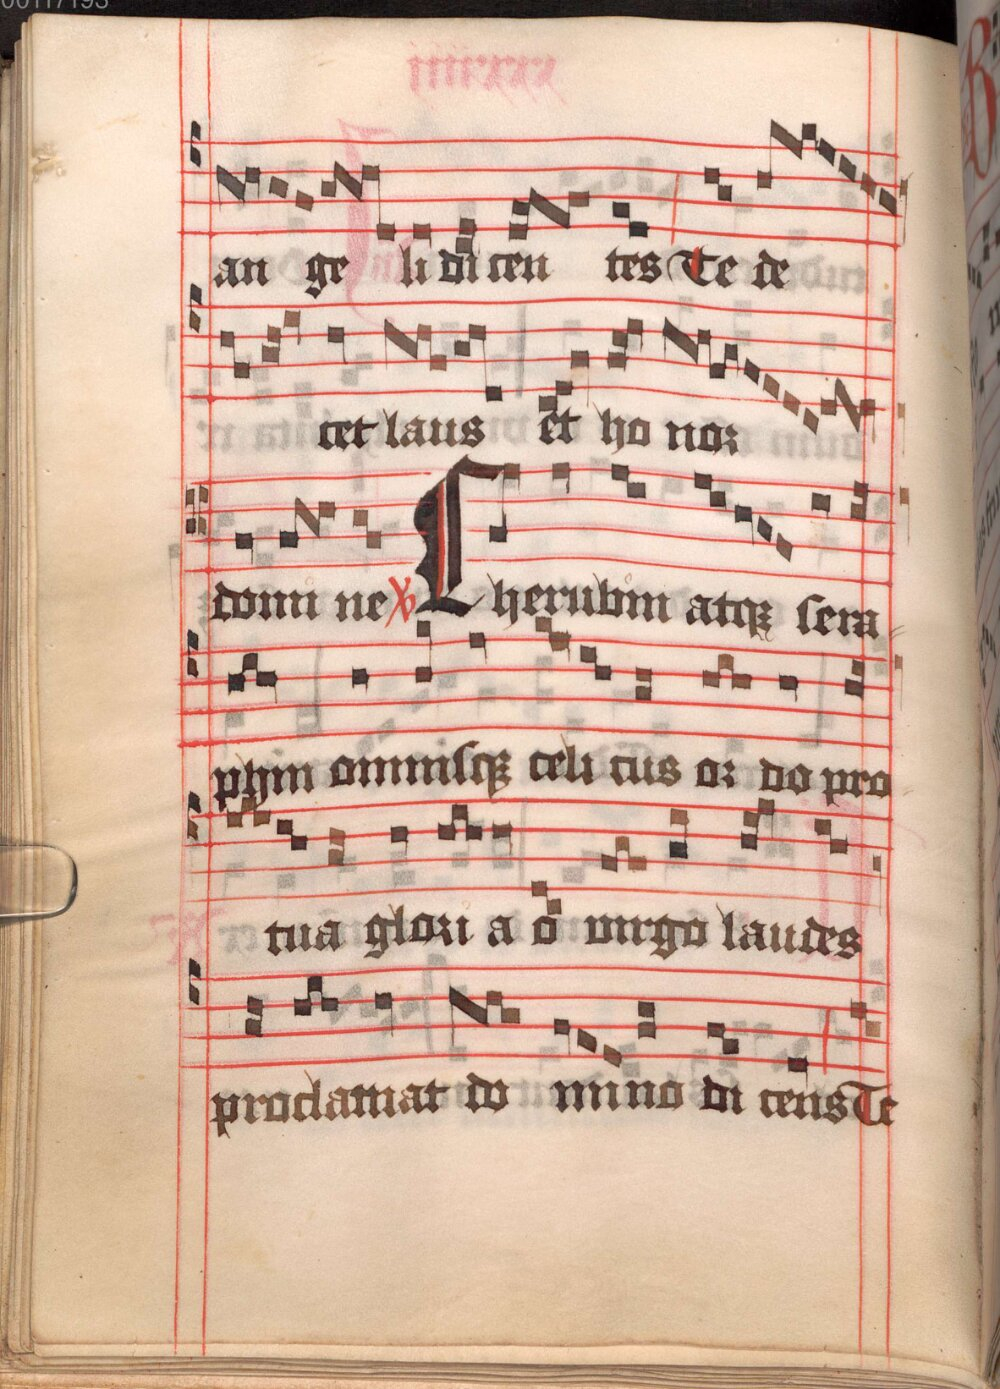 00117193
an ge li di cen tes Te de
cet laus et ho nor
domi ne Cherubin atqꝫ sera
phin omnisqꝫ celi tus or do pro
tua glori a o virgo laudes
proclamat do mino di cens Te